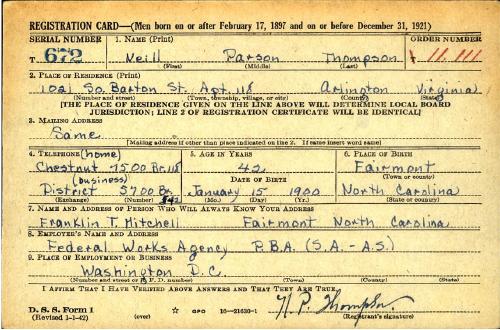 REGISTRATION CARD—(Men born on or after February 17, 1897 and on or before December 31, 1921)
SERIAL NUMBER 1. NAME (Print) ORDER NUMBER
T 672 Neill Parson Thompson 11,111
(First) (Middle) (Last)
2. PLACE OF RESIDENCE (Print)
1021 So. Barton St. Apt. 118 Arlington Virginia
(Number and street) (Town, township, village, or city) (County) (State)
[THE PLACE OF RESIDENCE GIVEN ON THE LINE ABOVE WILL DETERMINE LOCAL BOARD
JURISDICTION; LINE 2 OF REGISTRATION CERTIFICATE WILL BE IDENTICAL]
3. MAILING ADDRESS
Same
[Mailing address if other than place indicated on line 2. If same insert word same]
4. TELEPHONE (home) 5. AGE IN YEARS 6. PLACE OF BIRTH
Chestnut 7500 Br. 118 42 Fairmont
(business) DATE OF BIRTH (Town or county)
District 5700 Br. January 15 1900 North Carolina
(Exchange) (Number) 842 (Mo.) (Day) (Yr.) (State or country)
7. NAME AND ADDRESS OF PERSON WHO WILL ALWAYS KNOW YOUR ADDRESS
Franklin T. Mitchell Fairmont North Carolina
8. EMPLOYER'S NAME AND ADDRESS
Federal Works Agency P.B.A. (S.A. - A.S.)
9. PLACE OF EMPLOYMENT OR BUSINESS
Washington D.C.
(Number and street or R. F. D. number) (Town) (County) (State)
I AFFIRM THAT I HAVE VERIFIED ABOVE ANSWERS AND THAT THEY ARE TRUE.
D. S. S. Form 1 N. P. Thompson
(Revised 1-1-42) (over) ☆ GPO 16—21630-1 (Registrant's signature)